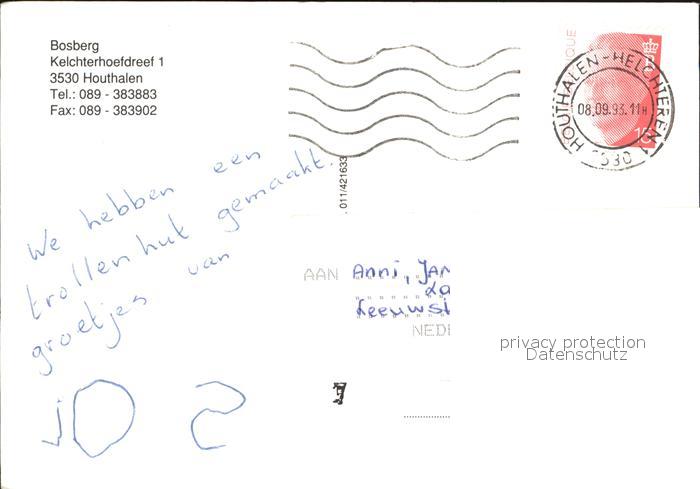 Bosberg
Kelchterhoefdreef 1
3530 Houthalen
Tel.: 089 - 383883
Fax: 089 - 383902
QUE
15
HOUTHALEN-HELCHTEREN 1
08.09.93.11H
3530
011/421633
We hebben een
trollen hut gemaakt.
groetjes van
JOS
AAN Anni, Jan
NEDE
privacy protection
Datenschutz